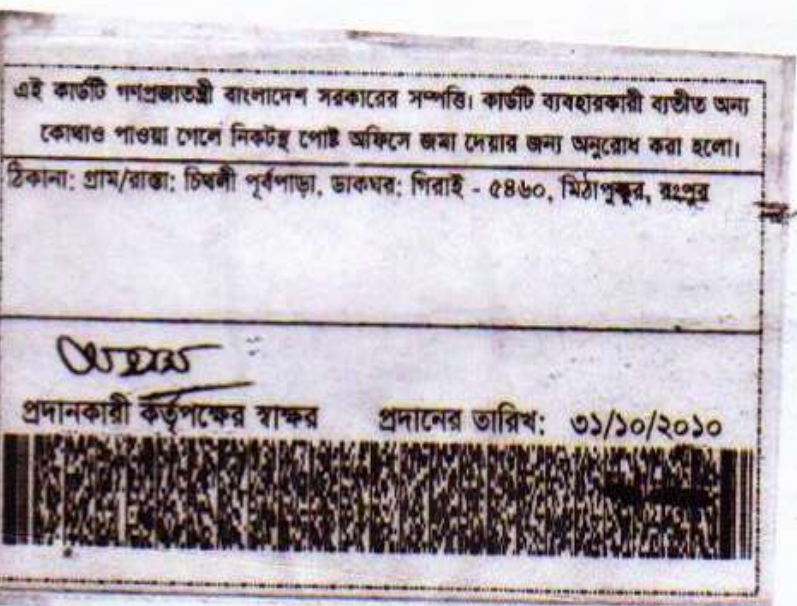 এই কার্ডটি গণপ্রজাতন্ত্রী বাংলাদেশ সরকারের সম্পত্তি। কার্ডটি ব্যবহারকারী ব্যতীত অন্য
কোথাও পাওয়া গেলে নিকটস্থ পোষ্ট অফিসে জমা দেয়ার জন্য অনুরোধ করা হলো।
ঠিকানা: গ্রাম/রাস্তা: চিথলী পূর্বপাড়া, ডাকঘর: গিরাই - ৫৪৬০, মিঠাপুকুর, রংপুর
প্রদানকারী কর্তৃপক্ষের স্বাক্ষর প্রদানের তারিখ: ৩১/১০/২০১০